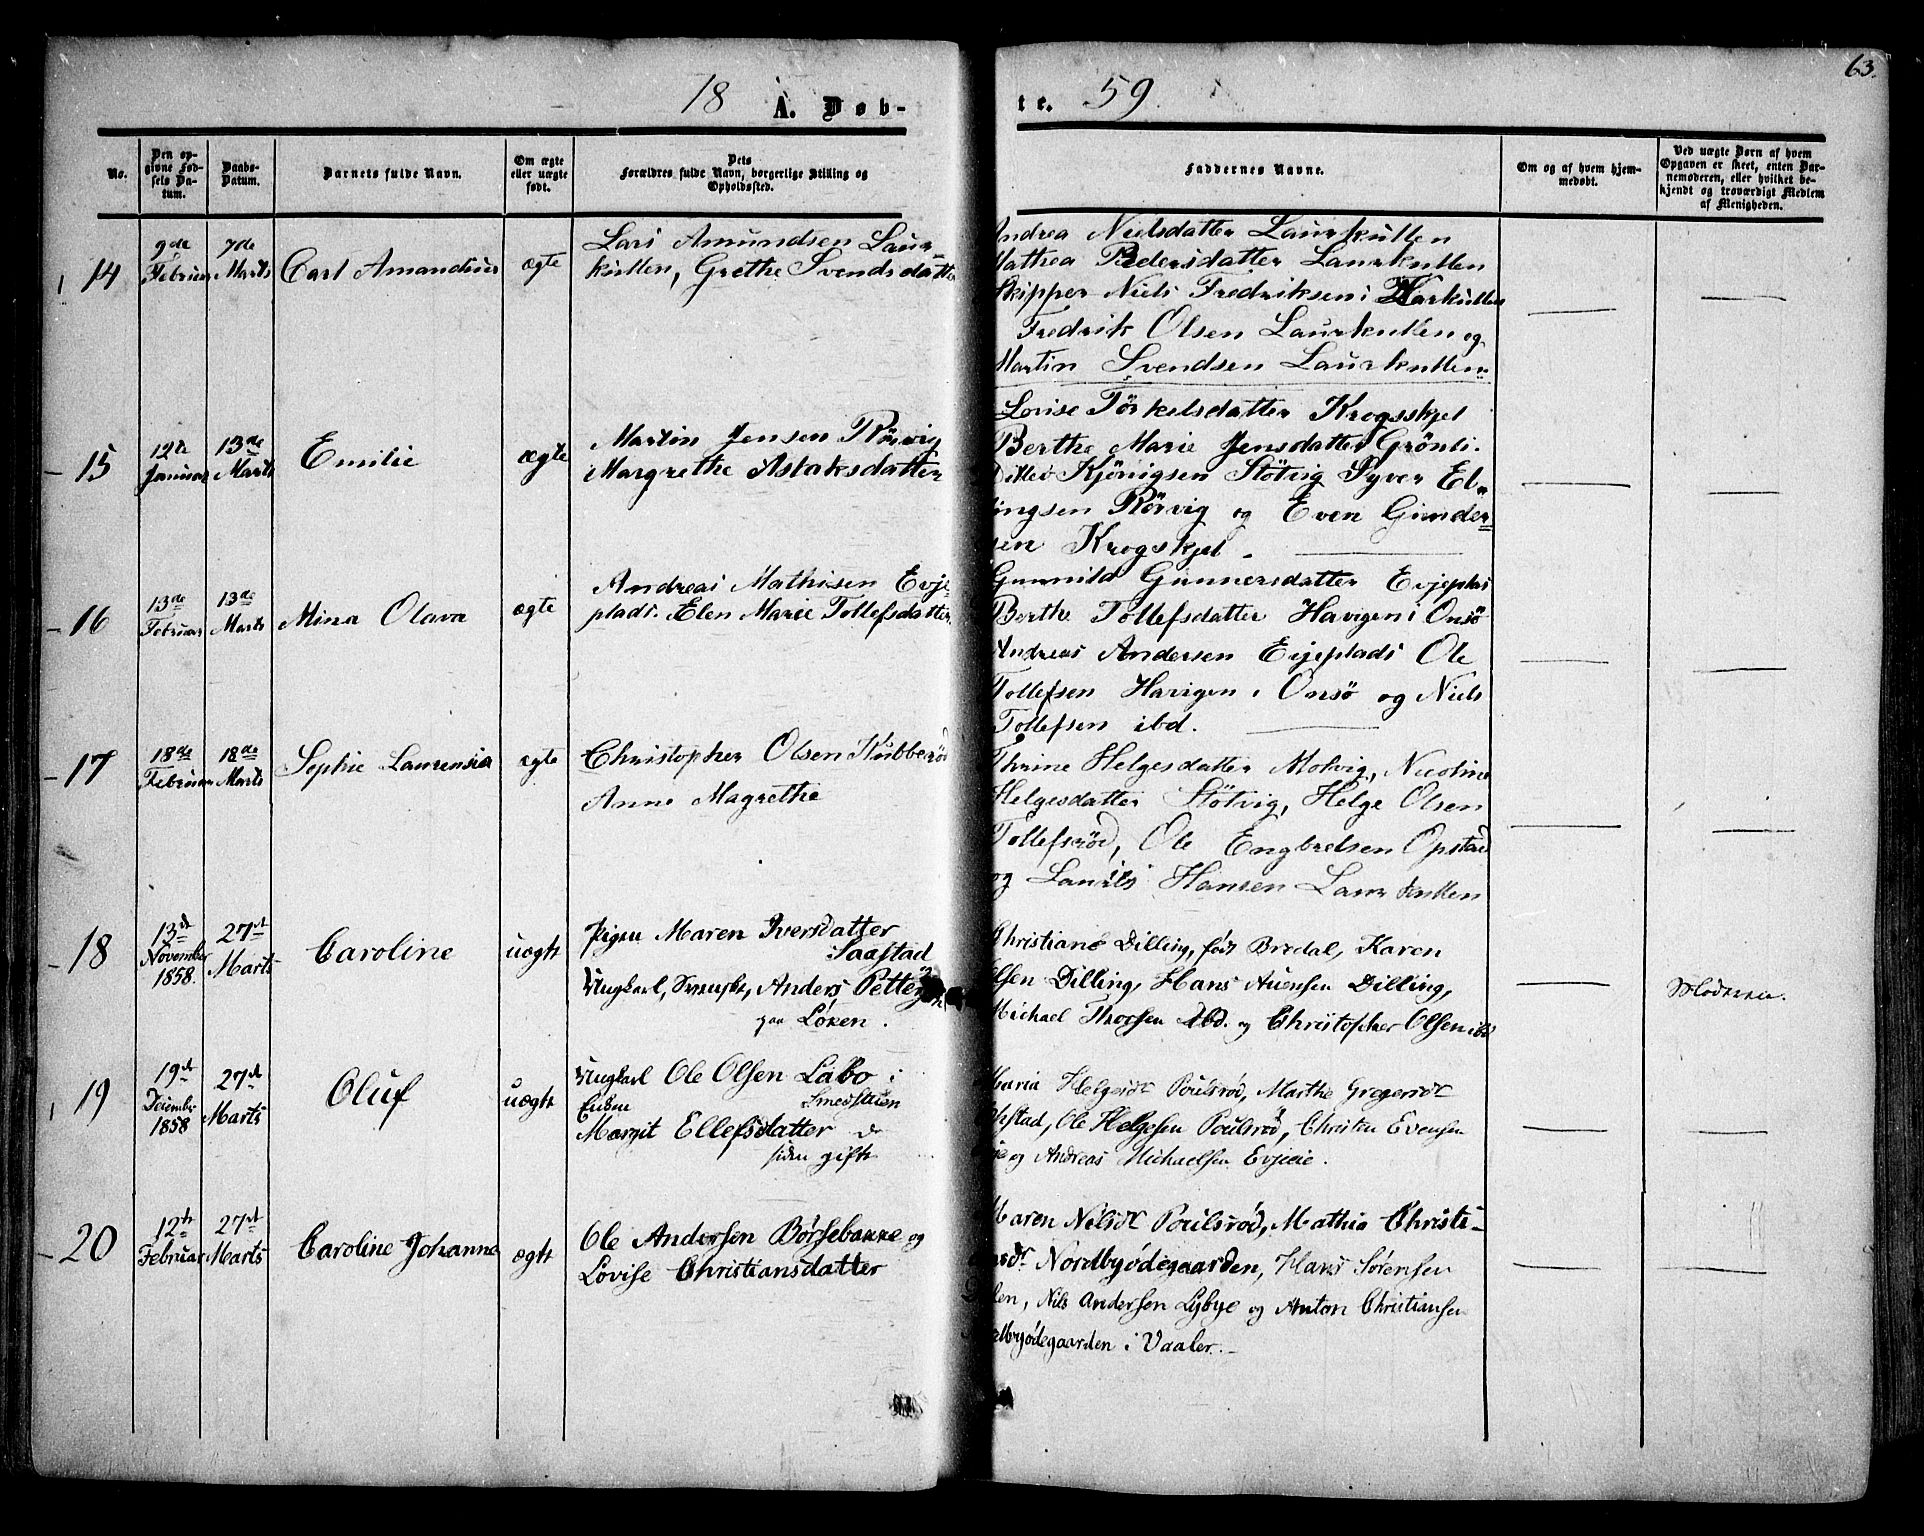 63.
18 A. Døb-
te. 59.
No.
Den op-
givne Fød-
sels Da-
tum.
Daabs-
Datum.
Barnets fulde Navn.
Om ægte
eller uægte
født.
Dets
Forældres fulde Navn, borgerlige Stilling og
Opholdssted.
Faddernes Navne.
Om og af hvem hjem-
medøbt.
Ved uægte Børn af hvem
Opgaven er skeet, enten Bar-
nemoderen, eller hvilket be-
kjendt og troværdigt Medlem
af Menigheden.
14
9de
Februar
7de
Marts
Carl Amandius
ægte
Lars Amundsen Laur-
kullen, Grethe Svendsdatter
Andrea Nielsdatter Laurkullen
Mathea Pedersdatter Laurkullen
Skipper Niels Fredriksen i
Fredrik Olsen Laurkullen og
Martin Svendsen Laurkullen
15
12te
Januar
13de
Marts
Emilie
ægte
Martin Jensen Rörvig
Margrethe Aslaksdatter
Lovise Törkelsdatter Krogsskjel
Berthe Marie Jensdatter Grönli.
Ditlev Kjönigsen Stötvig Syver El-
ingsen Rörvig og Even Gunder-
sen Krogskjel
16
13de
Februar
13de
Marts
Mina Olava
ægte
Andreas Mathisen Evje-
plads. Elen Marie Tollefsdatter
Gunnild Gunnersdatter Evjeplas
Berthe Tollefsdatter Havigen i Onsö
Andreas Andersen Evjeplads Ole
Tollefsen Havigen i Onsö og Niels
Tollefsen ibd.
17
18de
Februar
18de
Marts
Sophie Laurensia
ægte
Christopher Olsen Kubberöd
Anne Magrethe
Thrine Helgesdatter Molvig, Nicoline
Helgesdatter Stötvig, Helge Olsen
Tollefsröd, Ole Engbretsen Opstad
og Laurits Hansen Laurkullen
18
13de
November
1858.
27de
Marts
Caroline
uægte
Pigen Maren Iversdatter
Saastad
Ungkarl, Svensk, Anders Petter
paa Løken.
Christiane Dilling, født Bredal, Karen
Olsen Dilling, Hans Auensen Dilling,
Michael Thorsen Ibd. og Christopher Olsen ibd
Moderen.
19
19de
Decembr
1858
27de
Marts
Oluf
uægte
Ungkarl Ole Olsen Labo i
Smedstuen
Enken
Margit Ellefsdatter
siden gifte
Maria Helgesdr Poulsrød, Marthe Gregersdr
Opstad, Ole Helgesen Poulsrød, Christen Evensen
og Andreas Michaelsen Evjeie.
20
12te
Februar
27de
Marts
Caroline Johanne
ægte
Ole Andersen Børsebakke og
Lovise Christiansdatter
Maren Nilsdr Poulsrød, Mathia Christi-
ansdr Nordbyødegaarden, Hans Sørensen
Nils Andersen Lybye og Anton Christiansen
Nordbyødegaarden i Vaaler.